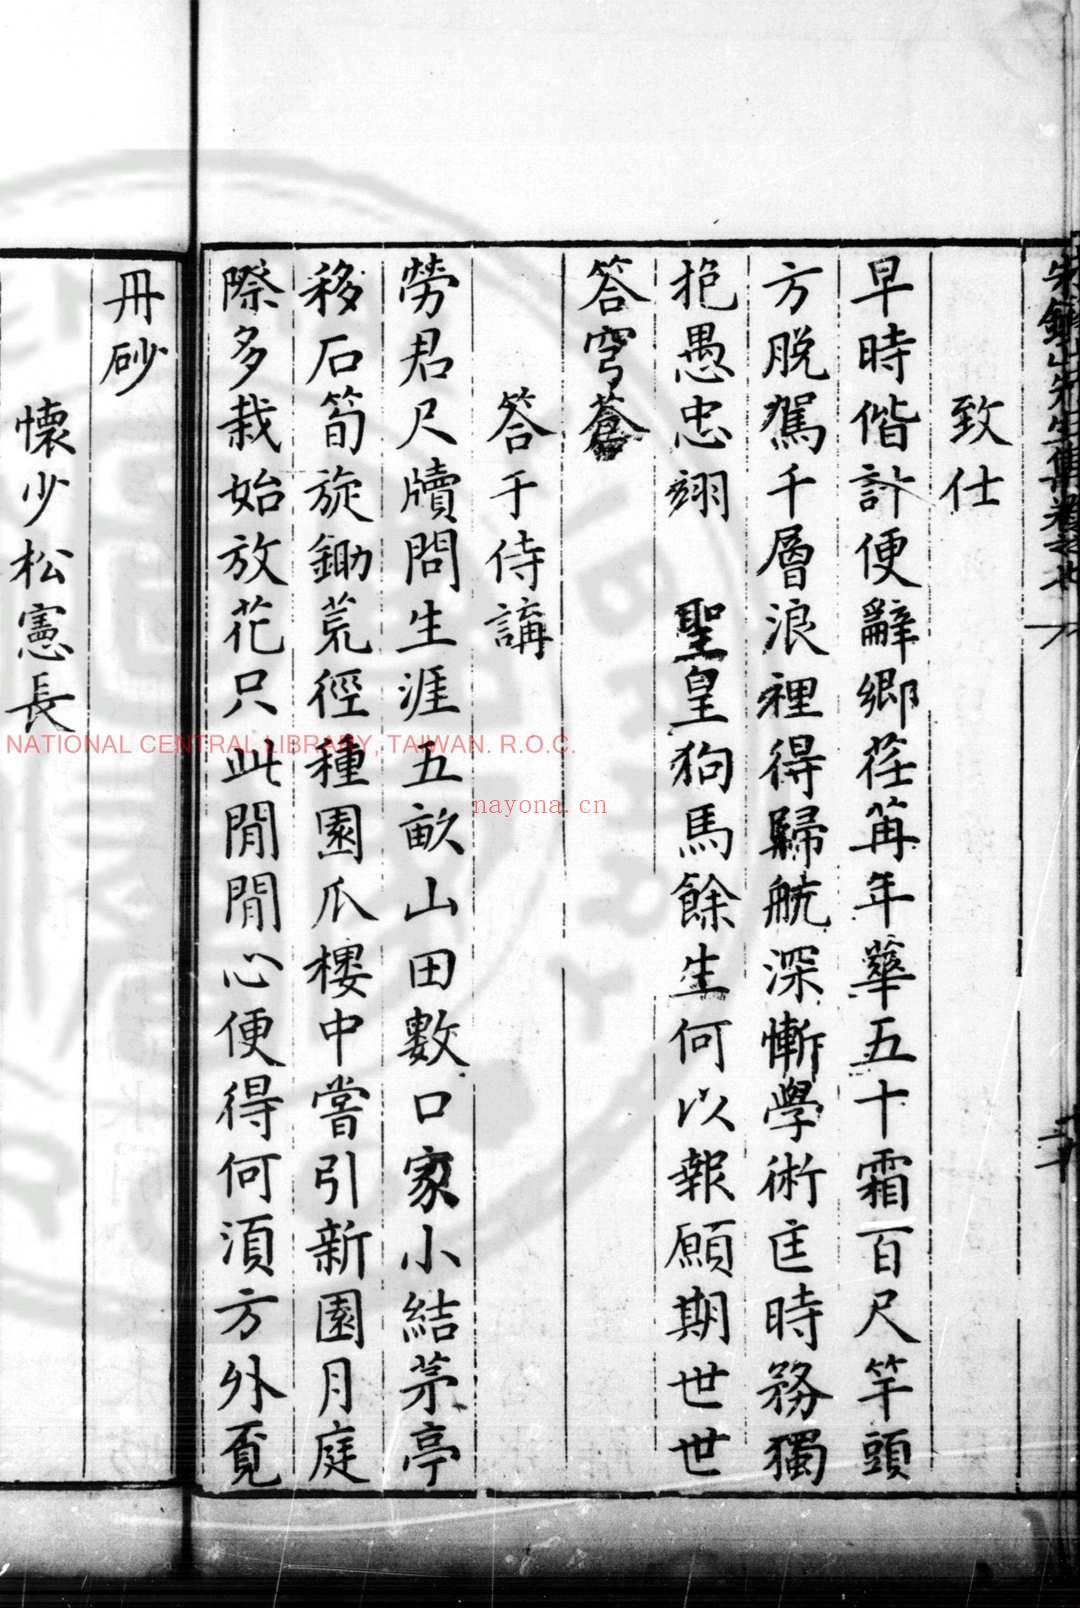 致仕
早時偕計便辭鄉荏苒年華五十霜百尺竿頭
方脫駕千層浪裡得歸航深慚學術匡時務獨
抱愚忠翊 聖皇狗馬餘生何以報願期世世
答穹蒼
答于侍講
勞君尺牘問生涯五畝山田數口家小結茅亭
移石筍旋鋤荒徑種園瓜樓中嘗引新園月庭
際多栽始放花只此閒閒心便得何須方外覓
丹砂
懷少松憲長
NATIONAL CENTRAL LIBRARY, TAIWAN. R.O.C.
nayona.cn